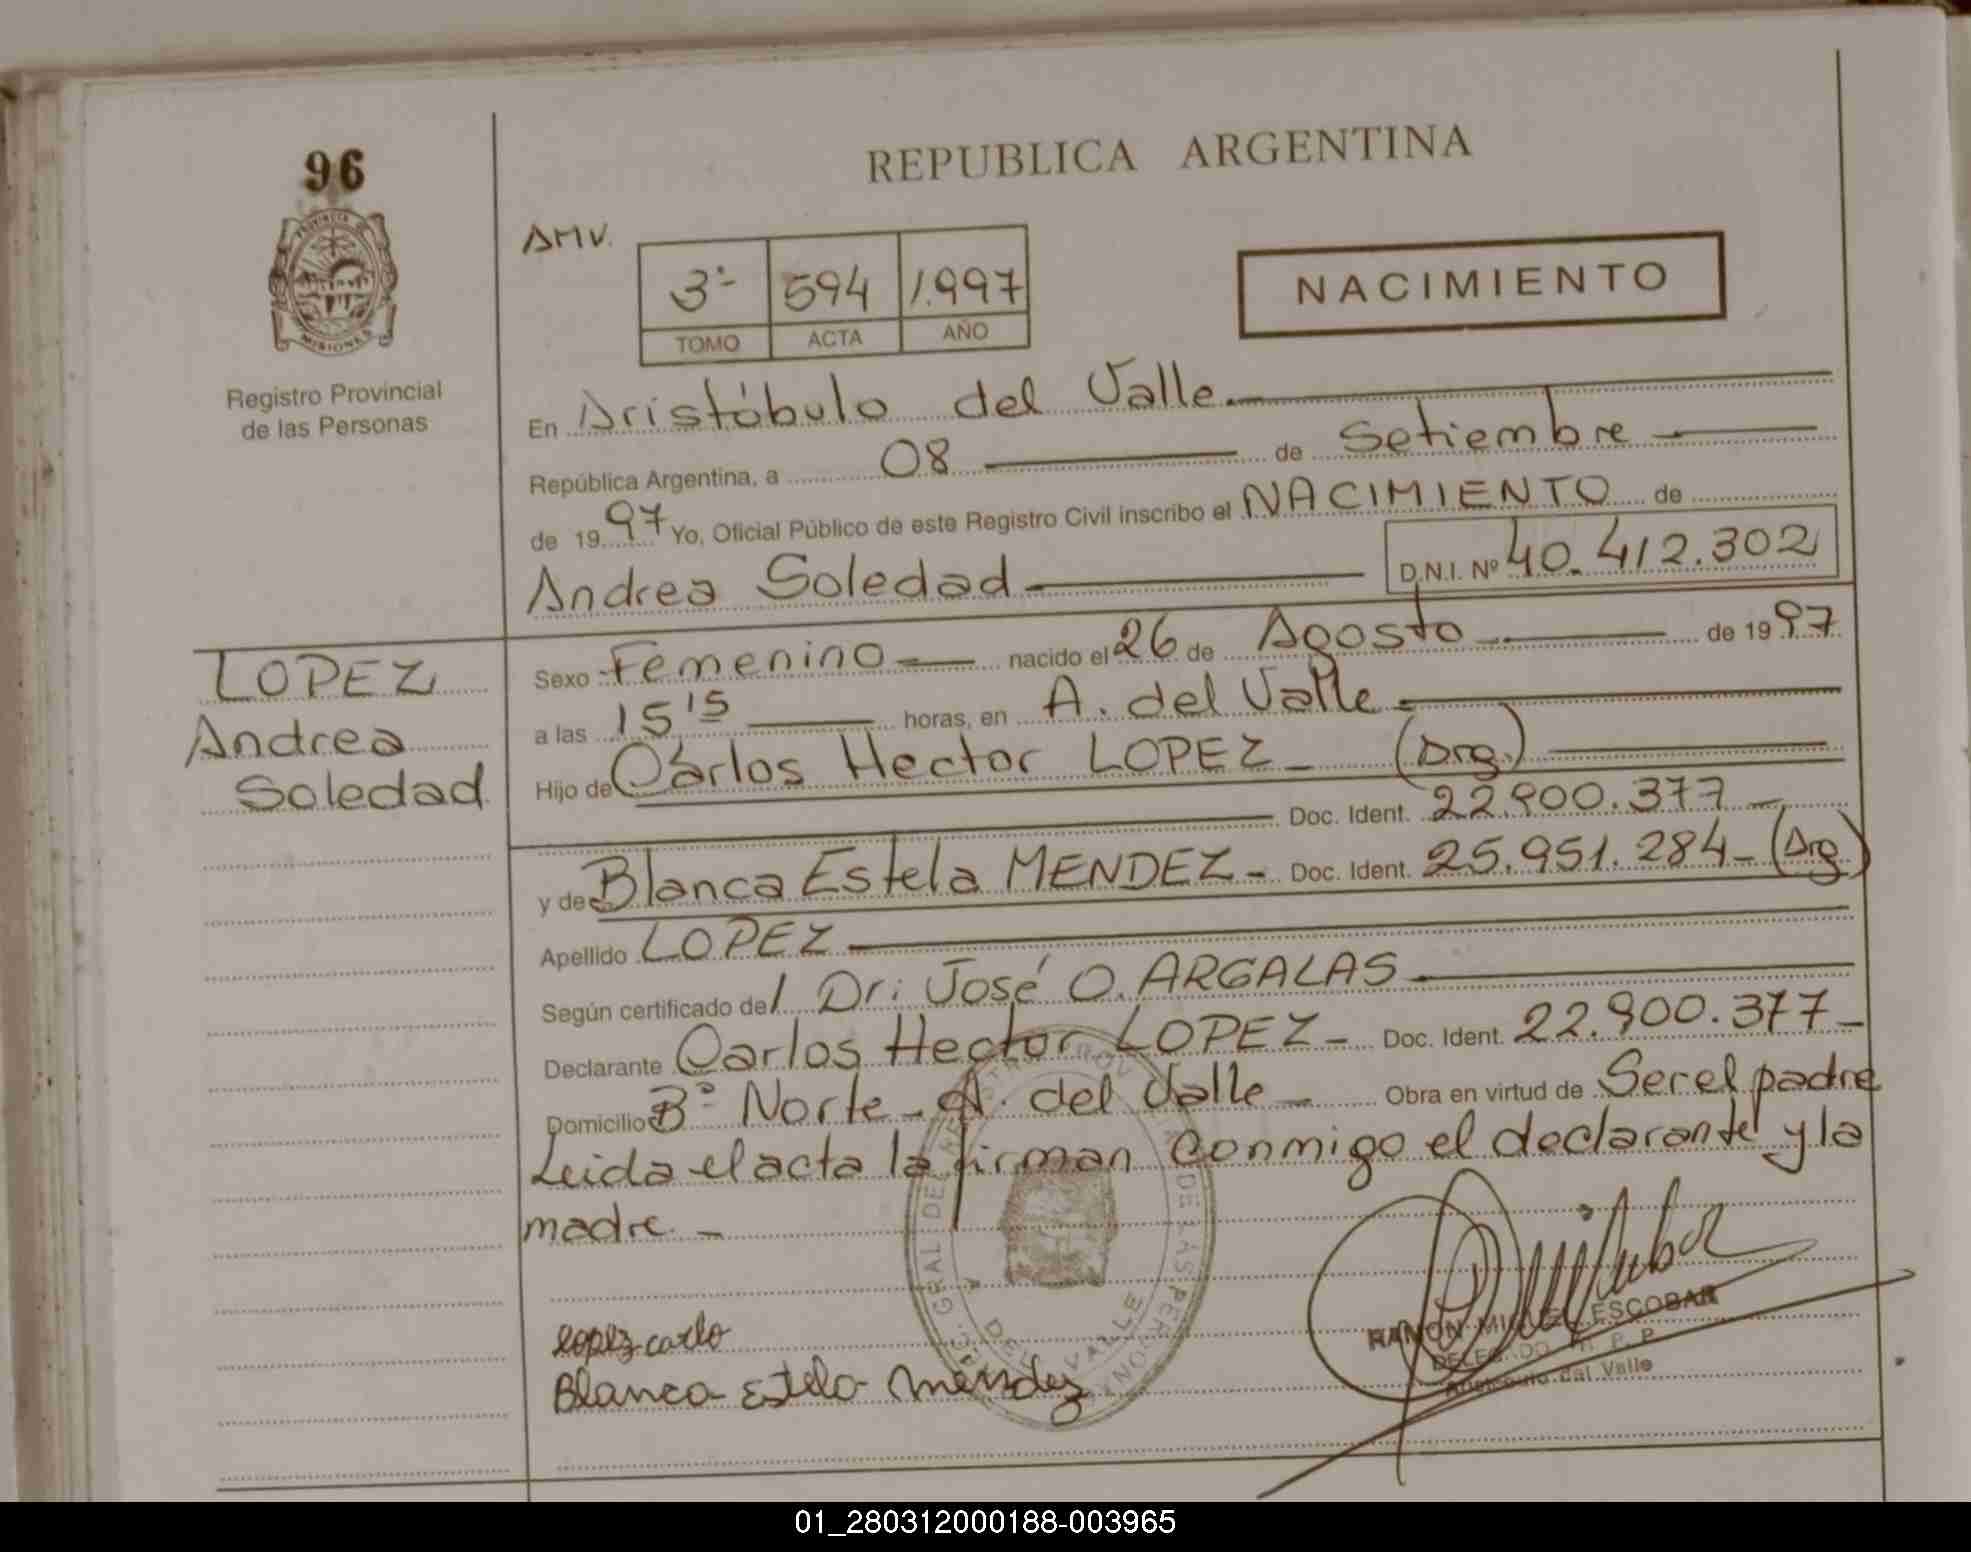 96
PROVINCIA DE
MISIONES
Registro Provincial
de las Personas
REPUBLICA ARGENTINA
AMV.
3º- 594 1.997
TOMO ACTA AÑO
NACIMIENTO
En Aristóbulo del Valle.
República Argentina, a 08 de Setiembre
de 1997 Yo, Oficial Público de este Registro Civil inscribo el NACIMIENTO de
Andrea Soledad D.N.I. Nº 40.412.302
LOPEZ
Andrea
Soledad
Sexo Femenino nacido el 26 de Agosto de 1997
a las 15 15 horas, en A. del Valle
Hijo de Carlos Hector LOPEZ (Arg.)
Doc. Ident. 22.900.377
y de Blanca Estela MENDEZ Doc. Ident. 25.951.284 (Arg)
Apellido LOPEZ
Según certificado del Dr: José O. ARGALAS
Declarante Carlos Hector LOPEZ Doc. Ident. 22.900.377
Domicilio Bº Norte A. del Valle Obra en virtud de Ser el padre
Leida el acta la firman conmigo el declarante y la
madre.
lopez carlo
Blanca Estela Mendez
RAMON MIGUEL ESCOBAR
DELEGADO R. P. P.
Aristobulo del Valle
DEL VALLE
01_280312000188-003965